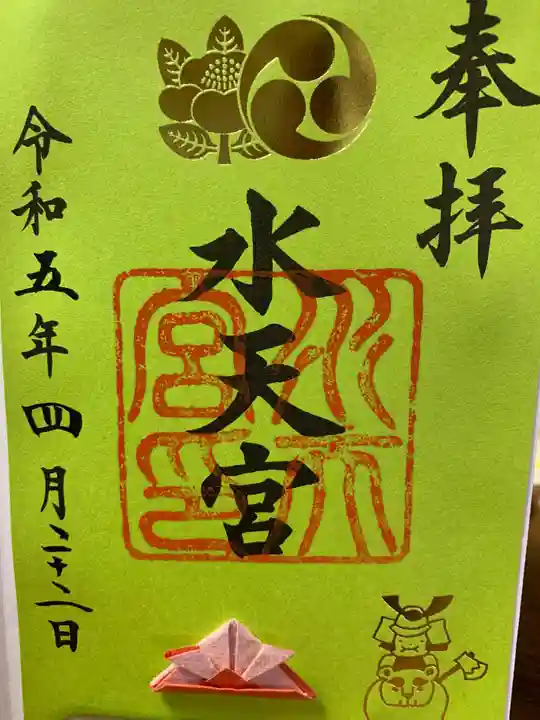 奉拝
水天宮
水天宮印
令和五年四月二十二日